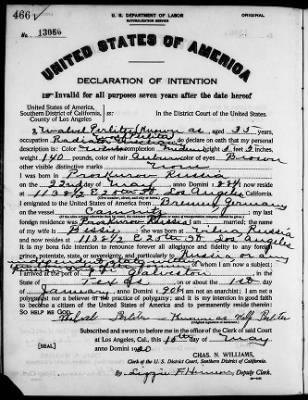 466
U. S. DEPARTMENT OF LABOR
NATURALIZATION SERVICE
ORIGINAL
No. 13066
UNITED STATES OF AMERICA
DECLARATION OF INTENTION
Invalid for all purposes seven years after the date hereof
United States of America,
Southern District of California,
County of Los Angeles
In the District Court of the United States.
I, known as , aged 35 years,
occupation , do declare on oath that my personal
description is: Color White, complexion , height 5 feet 2 inches,
weight 140 pounds, color of hair Auburn, color of eyes Brown
other visible distinctive marks None
I was born in Proskurow Russia
on the 22nd day of May, anno Domini 1884; I now reside
at 1138 1/2 E 20th St. Los Angeles, California.
I emigrated to the United States of America from Bremen, Germany
on the vessel ; my last
foreign residence was Proskurow Russia; I am married; the name
of my wife is Bessie; she was born in Russia
and now resides at 1138 1/2 E 20th St. Los Angeles
It is my bona fide intention to renounce forever all allegiance and fidelity to any foreign
prince, potentate, state, or sovereignty, and particularly to Russia or any
independent state
I arrived at the port of Galveston, in the
State of Texas, on or about the 1st day
of January, anno Domini 1906; I am not an anarchist; I am not a
polygamist nor a believer in the practice of polygamy; and it is my intention in good faith
to become a citizen of the United States of America and to permanently reside therein:
SO HELP ME GOD.
Known as
Subscribed and sworn to before me in the office of the Clerk of said Court
at Los Angeles, Cal., this 10th day of May
anno Domini 1920
[SEAL]
CHAS. N. WILLIAMS,
Clerk of the U. S. District Court, Southern District of California.
By , Deputy Clerk.